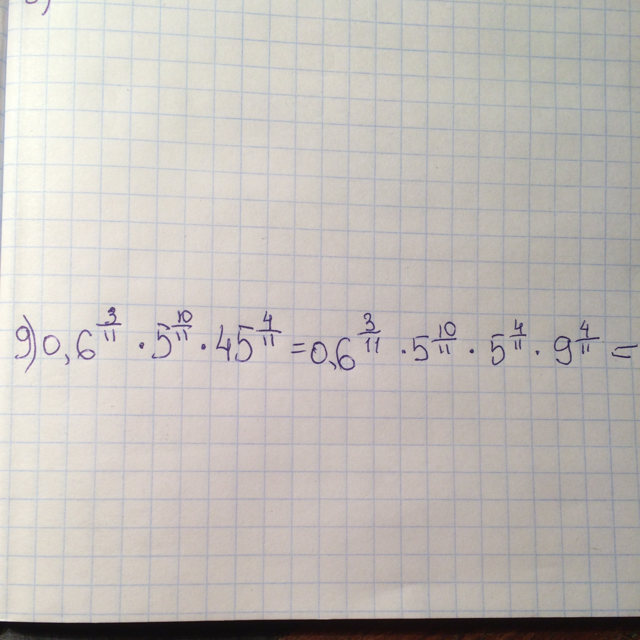 9) 0,6^(3/11) · 5^(10/11) · 45^(4/11) = 0,6^(3/11) · 5^(10/11) · 5^(4/11) · 9^(4/11) =